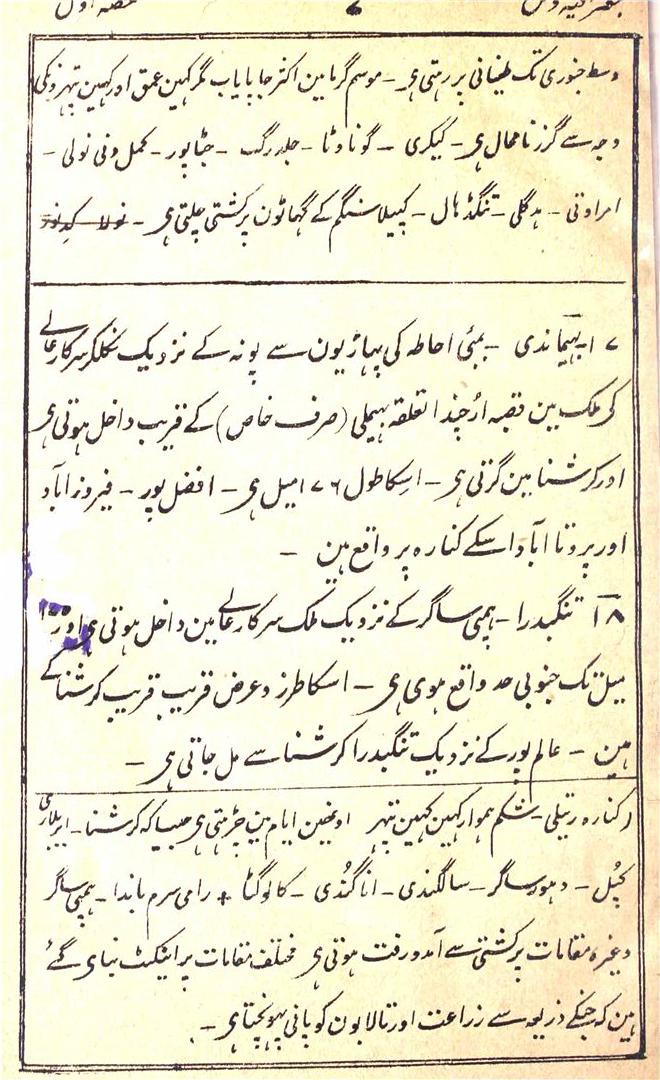 حصہ اول
وسط جنوری تک طغیانی پر رہتی ہی - موسم گرما مین اکثر جا پایاب مگر کہین عمق اور کہین تہرونکی
وجہ سے گزرنا محال ہی - کیکری - گوناوٹا - جلدرگ - جٹاپور - کمل ونی نولی -
امراوتی - مدگلی - تنگڈہال - کپیلا سنگم کے گہاٹون پر کشتی چلتی ہی -
۱۷ بہیما ندی - بمبئی احاطہ کی پہاڑیون سے پونہ کے نزدیک نکلکر سرکار عالے
کر ملک مین قصبہ ارجندا تعلقہ بہیملی (صرف خاص) کے قریب داخل ہوتی ہی
اور کرشنا مین گرتی ہی - اسکا طول ۱۷۶ میل ہی - افضل پور - فیروزآباد
اور پروتاآباد اسکے کنارہ پر واقع ہین -
۱۸ تنگبدرا - ہمپی ساگر کے نزدیک ملک سرکار عالے مین داخل ہوتی ہی اور
میل تک جنوبی حد واقع ہوی ہی - اسکا طرز و عرض قریب قریب کرشنا کے
ہین - عالم پور کے نزدیک تنگبدرا کرشنا سے مل جاتی ہی -
کنارہ ریتلی - شکم ہموار کہین کہین تہر اونہین ایام مین چڑہتی ہی جیسا کہ کرشنا -
کپل - دہور ساگر - سالگندی - اناگُندی - کالوگٹا + رامی سرم باندا - ہمپی ساگر
وغیرہ مقامات پر کشتی سے آمدورفت ہوتی ہی مختلف مقامات پر اینکٹ بنای گئے
ہین کہ جنکے ذریعہ سے زراعت اور تالابون کو پانی پہونچتا ہی -